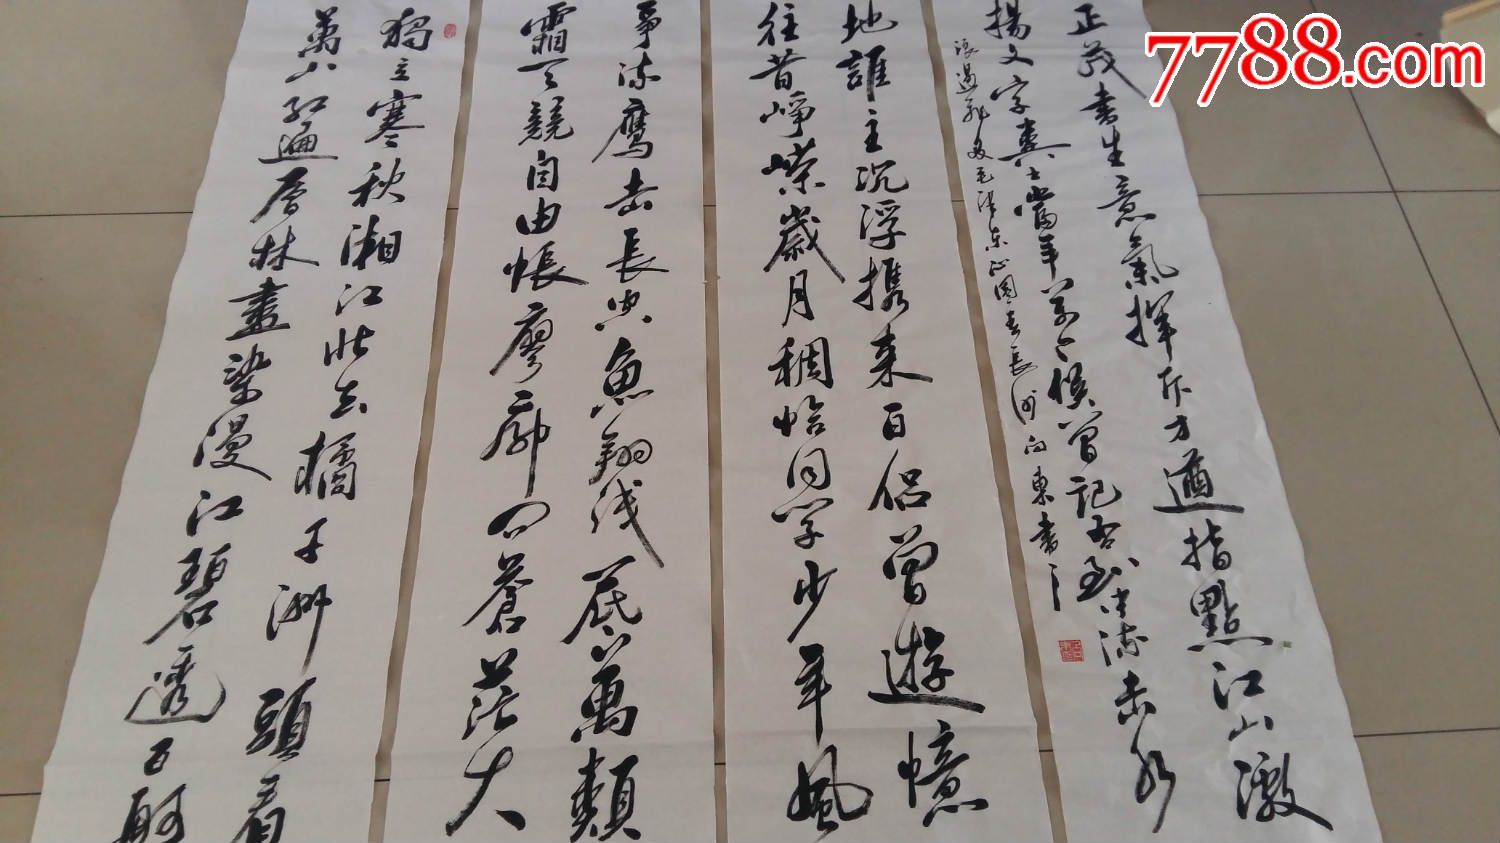 7788.com
獨立寒秋湘江北去橘子洲頭看
萬山红遍層林盡染漫江碧透百舸
爭流鹰击長空魚翔浅底萬類
霜天競自由悵廖廓问蒼茫大
地誰主沉浮携来百侣曾遊憶
往昔峥嶸歲月稠恰同学少年風
正茂书生意氣揮斥方遒指點江山激
揚文字糞土當年万户侯曾記否到中流击水
浪遏飛舟毛泽东沁园春長沙向東书